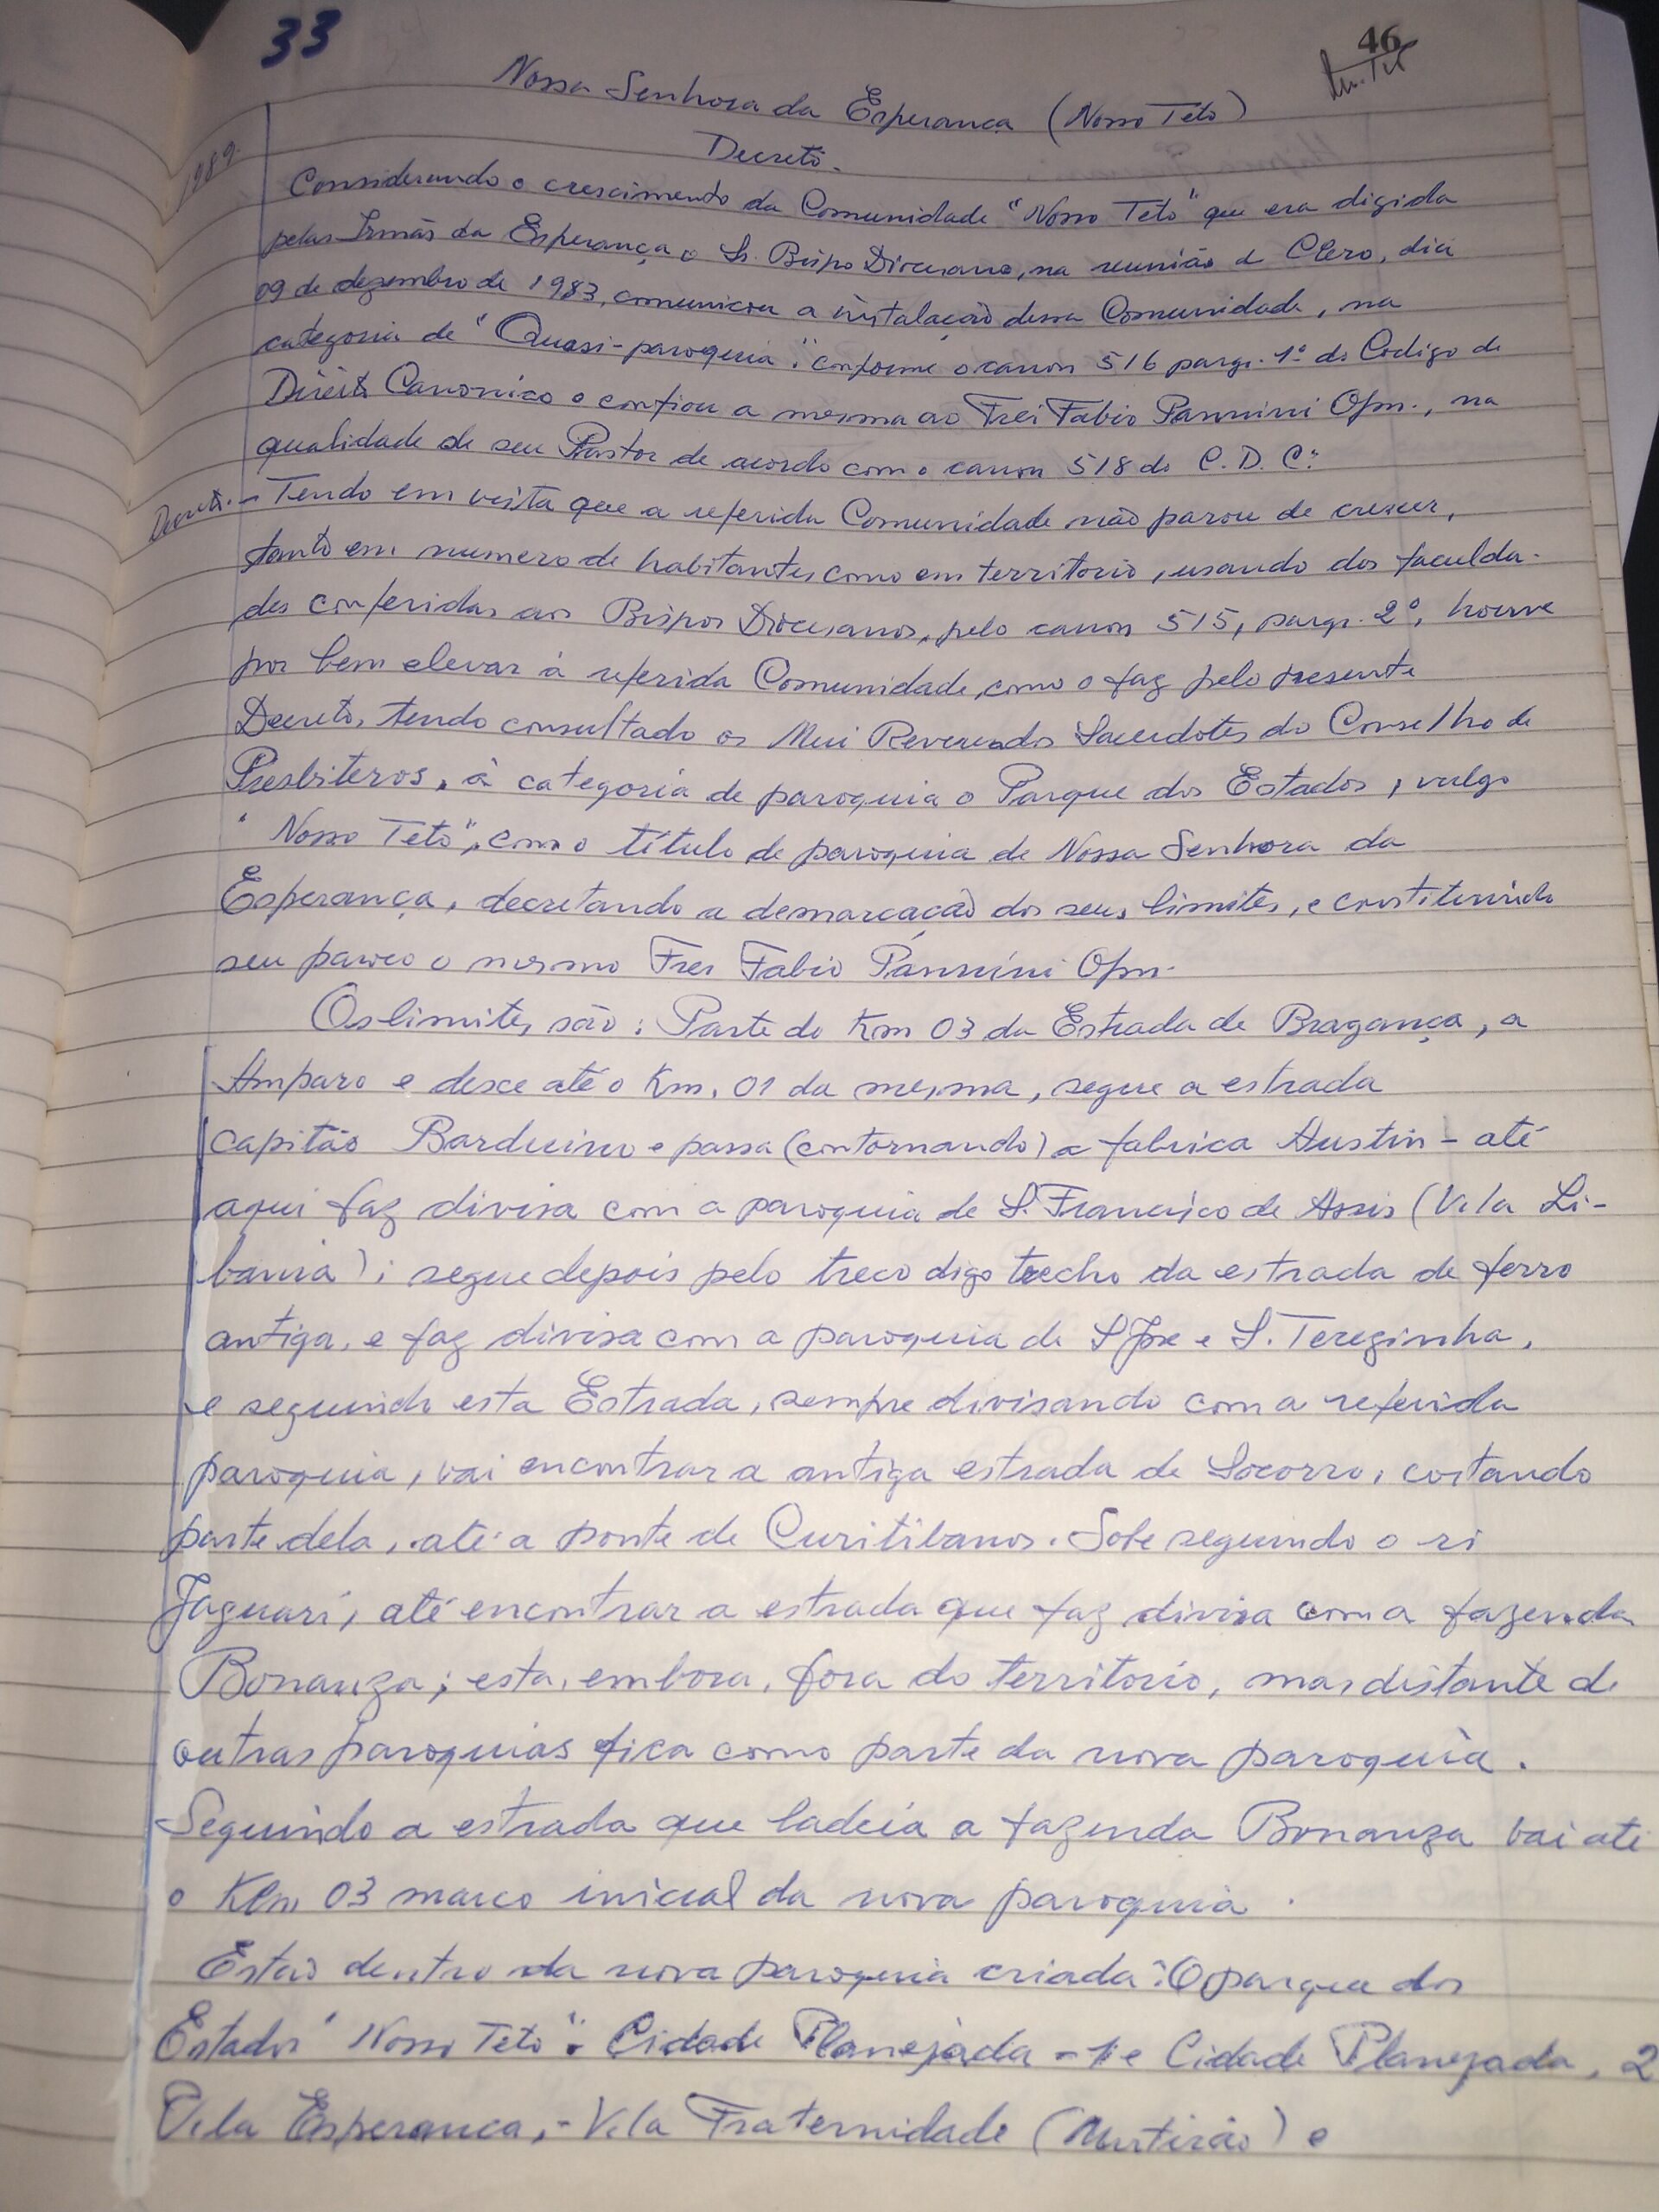 33
46
Nossa Senhora da Esperança (Nosso Teto)
Decreto.
1989.
Considerando o crescimento da Comunidade "Nosso Teto" que era digida
pelas Irmãs da Esperança o Sr. Bispo Diocesano, na reunião d Clero, dia
09 de dezembro de 1983, comunicou a instalação dessa Comunidade, na
categoria de "Quasi-paroquia". conforme o canon 516 pargr. 1º do Codigo de
Direito Canonico e confiou a mesma ao Frei Fabio Pannini Ofm., na
qualidade de seu Pastor de acordo com o canon 518 do C. D. C.
Decreto. - Tendo em vista que a referida Comunidade não parou de crescer,
tanto em numero de habitantes, como em territorio, usando das faculda-
des conferidas aos Bispos Diocesanos, pelo canon 515, pargr. 2º, houve
por bem elevar à referida Comunidade, como o faz pelo presente
Decreto, tendo consultado os Mui Reverendos Sacerdotes do Conselho de
Presbiteros, à categoria de paroquia o Parque dos Estados, vulgo
"Nosso Teto", com o título de paroquia de Nossa Senhora da
Esperança, decretando a demarcação dos seus limites, e constituindo
seu paroco o mesmo Frei Fabio Pannini Ofm.
Os limites são: Parte do Km 03 da Estrada de Bragança, a
Amparo e desce até o Km. 01 da mesma, segue a estrada
capitão Barduino e passa (contornando) a fabrica Austin - até
aqui faz divisa com a paroquia de S. Francisco de Assis (Vila Li-
bania); segue depois pelo treco digo trecho da estrada de ferro
antiga, e faz divisa com a paroquia de S Jose e S. Terezinha,
e seguindo esta Estrada, sempre divisando com a referida
paroquia, vai encontrar a antiga estrada de Socorro, cortando
parte dela, até a ponte de Curitibanos. Sobe seguindo o ri
Jaguari, até encontrar a estrada que faz divisa com a fazenda
Bonanza; esta, embora, fora do territorio, mas distante de
outras paroquias fica como parte da nova paroquia.
Seguindo a estrada que ladeia a fazenda Bonanza vai até
o Klm 03 marco inicial da nova paroquia.
Estão dentro da nova paroquia criada: O parque dos
Estados "Nosso Teto". Cidade Planejada - 1 e Cidade Planejada, 2
Vila Esperanca, - Vila Fraternidade (Mutirão) e